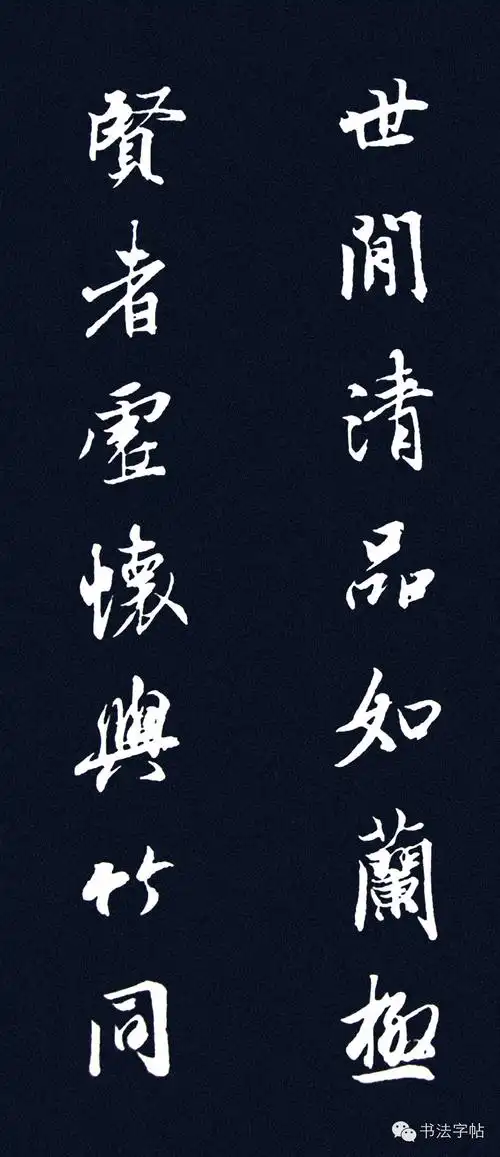 世間清品如蘭極
賢者虛懷與竹同
书法字帖